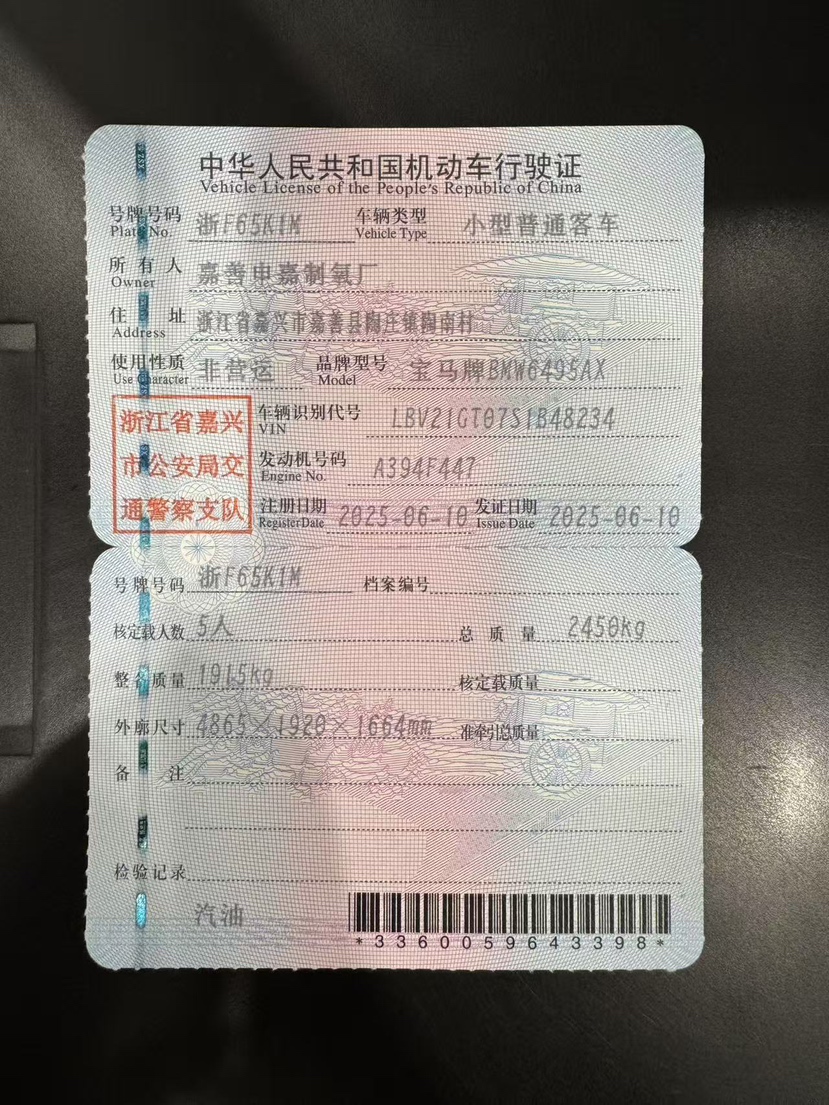 中华人民共和国机动车行驶证
Vehicle License of the People's Republic of China
号牌号码 浙F65K1M 车辆类型 小型普通客车
Plate No. Vehicle Type
所有人 嘉善申嘉制氧厂
Owner
住址 浙江省嘉兴市嘉善县陶庄镇陶南村
Address
使用性质 非营运 品牌型号 宝马牌BMW6495AX
Use Character Model
浙江省嘉兴
市公安局交
通警察支队
车辆识别代号 LBV21GT07S1B48234
VIN
发动机号码 A394F447
Engine No.
注册日期 2025-06-10 发证日期 2025-06-10
Register Date Issue Date
号牌号码 浙F65K1M 档案编号
核定载人数 5人 总质量 2450kg
整备质量 1915kg 核定载质量 --
外廓尺寸 4865×1920×1664mm 准牵引总质量 --
备注
检验记录
汽油
*3360059643398*